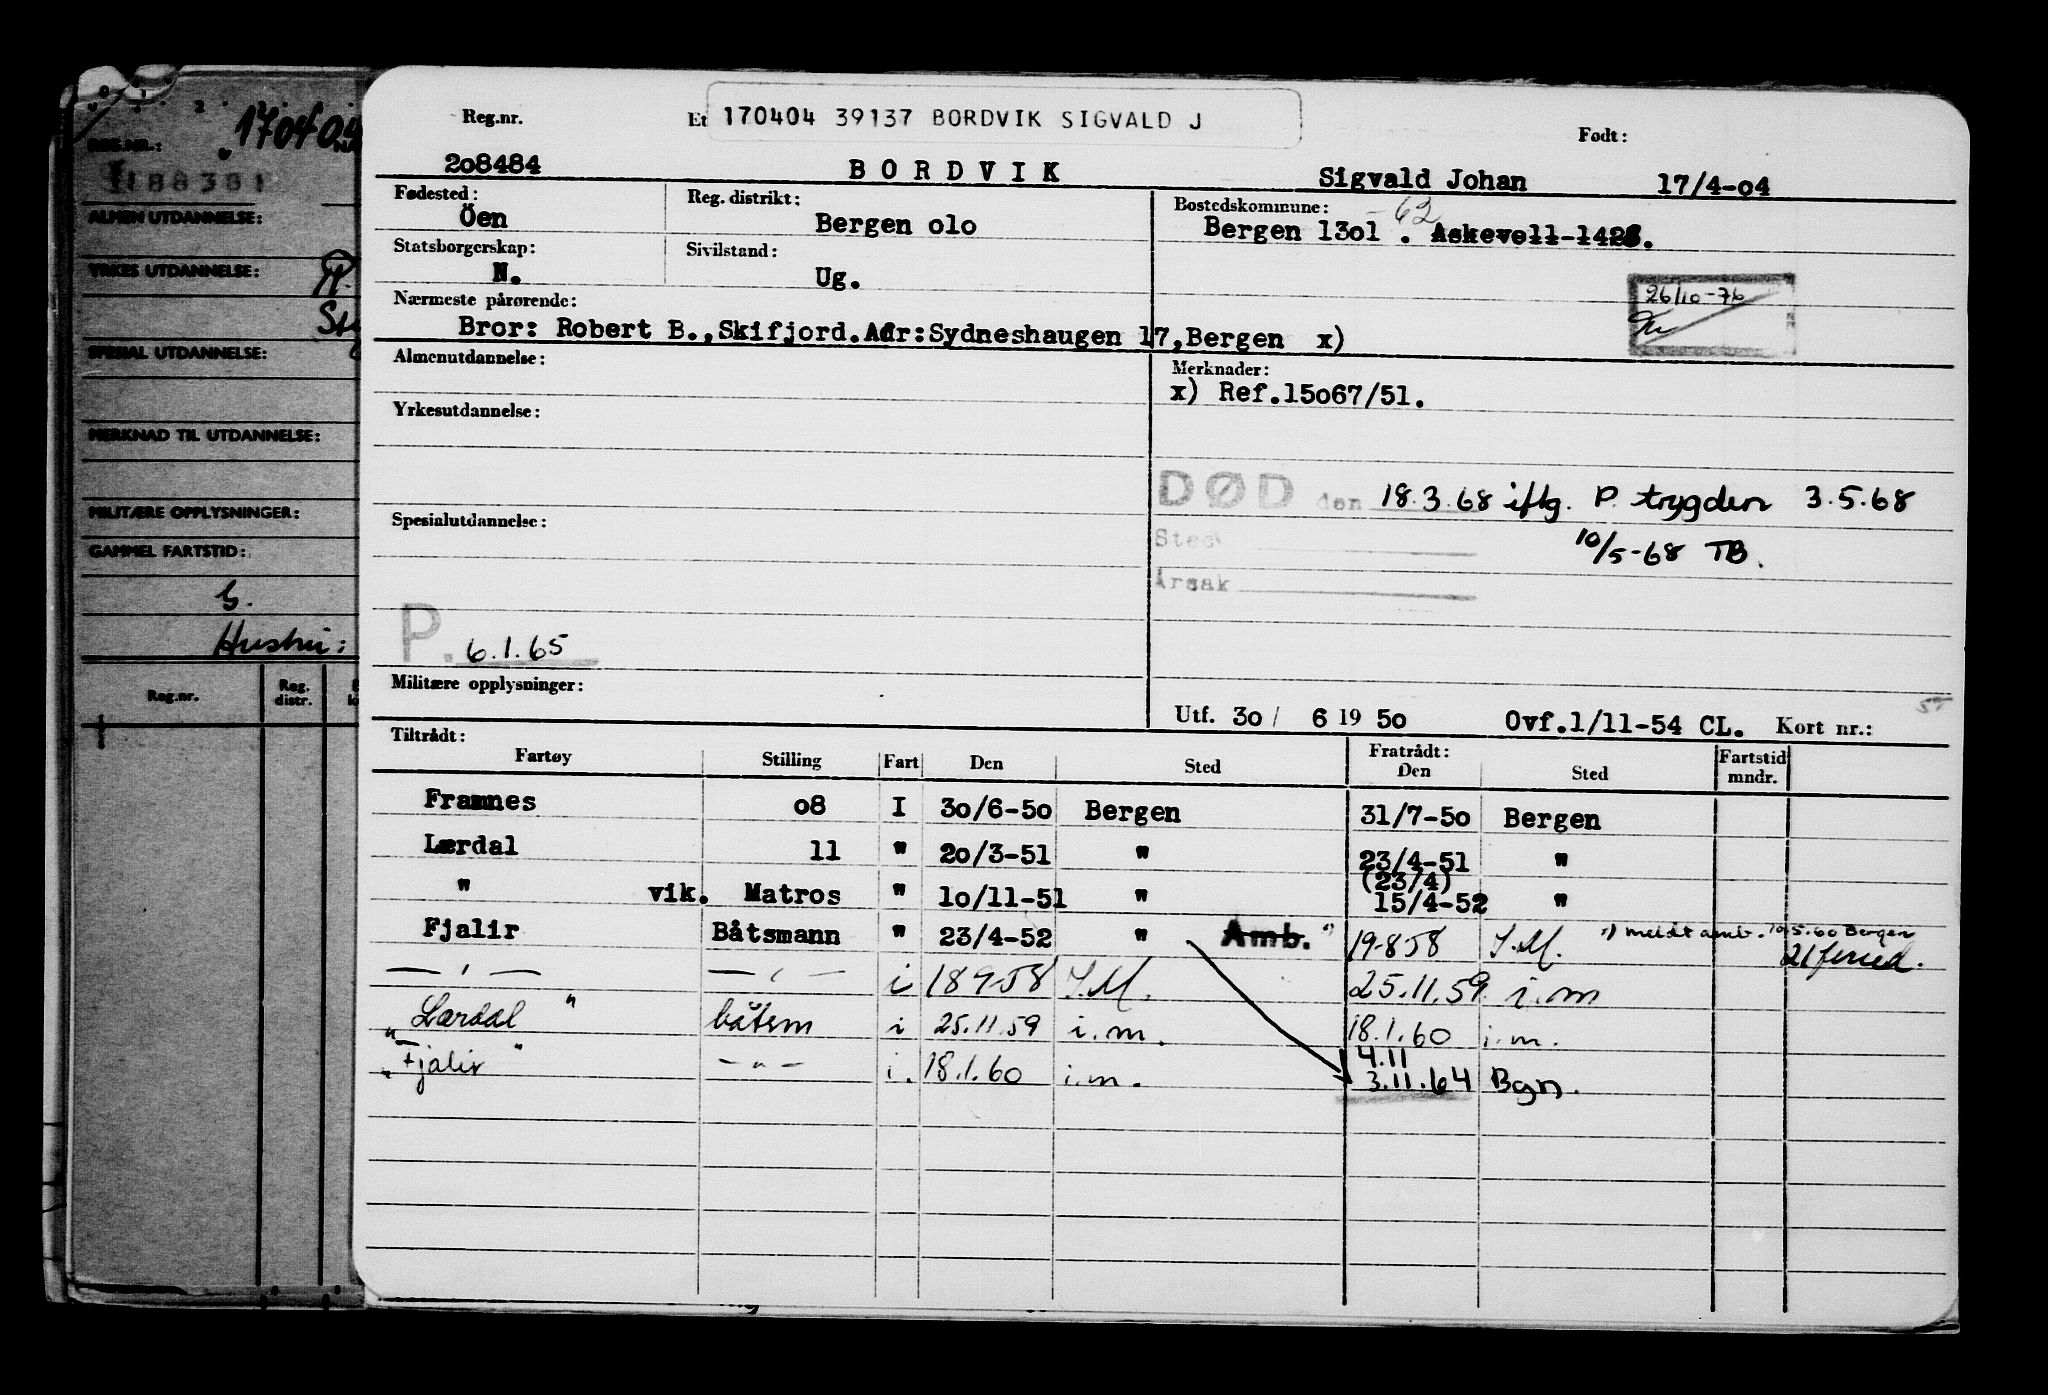 170404
REG.NR.:
188381
ALMEN UTDANNELSE:
YRKES UTDANNELSE:
SPESIAL UTDANNELSE:
MERKNAD TIL UTDANNELSE:
MILITÆRE OPPLYSNINGER:
GAMMEL FARTSTID:
Hustru:
Reg.nr. Reg. distr.
Reg.nr. Et 170404 39137 BORDVIK SIGVALD J Født:
2o8484 BORDVIK Sigvald Johan 17/4-o4
Fødested: Reg. distrikt: Bostedskommune:
Öen Bergen olo Bergen 13ol-62. Askevoll-1428.
Statsborgerskap: Sivilstand:
N. Ug.
26/10-76
Nærmeste pårørende:
Bror: Robert B.,Skifjord.Adr:Sydneshaugen 17,Bergen x)
Almenutdannelse: Merknader:
x) Ref.15o67/51.
Yrkesutdannelse:
DØD den 18.3.68 iflg. P. trygden 3.5.68
Spesialutdannelse:
Sted 10/5-68 TB.
Årsak
P. 6.1.65
Militære opplysninger:
Utf. 3o/ 6 19 5o Ovf.1/11-54 CL. Kort nr.:
Tiltrådt: Fratrådt:
Fartøy Stilling Fart Den Sted Den Sted Fartstid mndr.
Framnes o8 I 3o/6-5o Bergen 31/7-5o Bergen
Lærdal 11 " 2o/3-51 " 23/4-51 "
(23/4)
" vik. Matros " 1o/11-51 " 15/4-52 "
Fjalir Båtsmann " 23/4-52 " Amb. 19-858 I.M. meldt amb. 10.5.60 Bergen
21 fører.
— " — — " — i 18958 I.M. 25.11.59 i.m
Lærdal " båtsm i 25.11.59 i.m. 18.1.60 i.m.
4.11
" Fjalir " - " - i. 18.1.60 i.m. 3.11.64 Bgn.